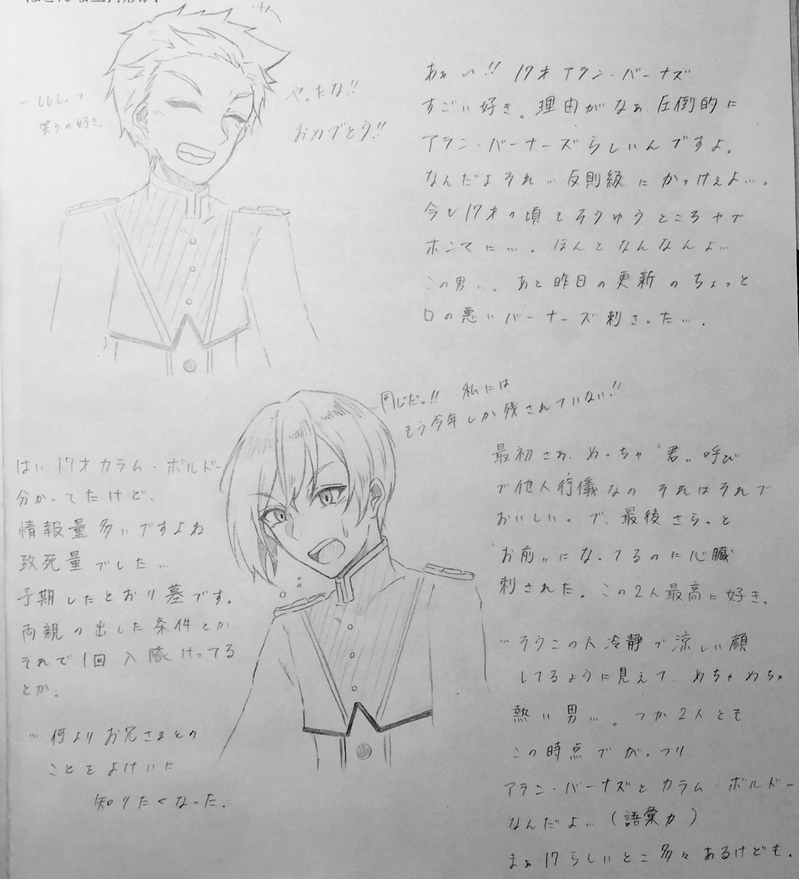 …ししし。って
笑うの好き。
やったな!!
おめでとう!!
あぁい!! 17才アラン・バーナズ
すごい好き。理由がなぁ、圧倒的に
アラン・バーナーズらしいんですよ。
なんだよそれ…反則級にかっけぇよ…。
今も17才の頃もそうゆうところやで
ホンマに…。ほんとなんなんよ…
この男…。あと昨日の更新のちょっと
口の悪いバーナーズ刺さった…。
同じだ。!! 私には
もう今年しか残されていない!!
はい17才カラム・ボルドー
分かってたけど、
情報量多いですよね
致死量でした…
予期したとおり墓です。
両親の出した条件とか、
それで1回入隊けってる
とか。
…何よりお兄さまとの
ことをよけいに
知りたくなった。
最初さぁ、めっちゃ"君"呼び
で他人行儀なの それはそれで
おいしい。で、最後さらっと
"お前"になってるのに心臓
刺された。この2人最高に好き。
…そうこの人冷静で涼しい顔
してるように見えて、めちゃめちゃ
熱い男…。つか2人とも
この時点でがっつり
アラン・バーナズとカラム・ボルドー
なんだよ…(語彙力)
まぁ17らしいとこ多々あるけども。